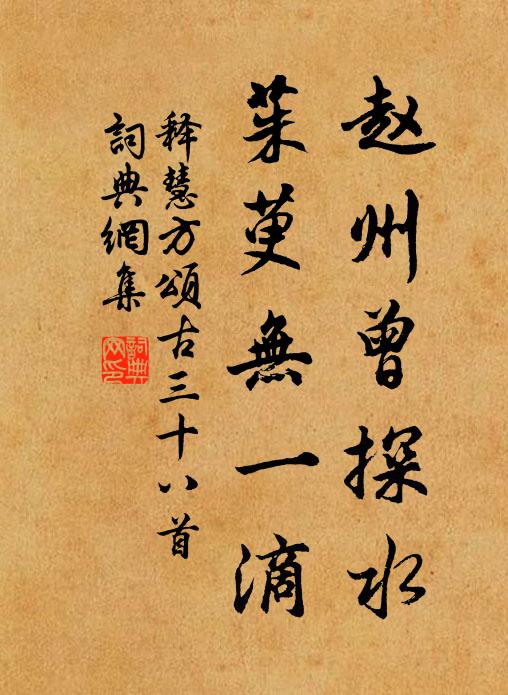 赵州曾探水
茱萸無一滴
释慧方頌古三十八首
詞典網集
詞典網印